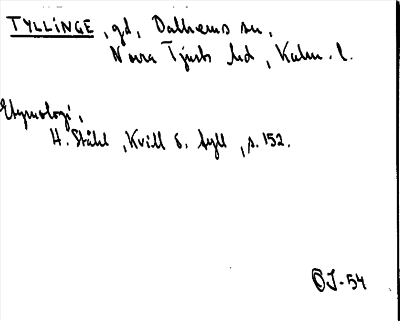 TYLLINGE, gd, Dalhems sn,
Norra Tjusts hd, Kalm. l.
Etymologi,
H. Ståhl, Kvill o. tyll, s. 152.
OJ-54